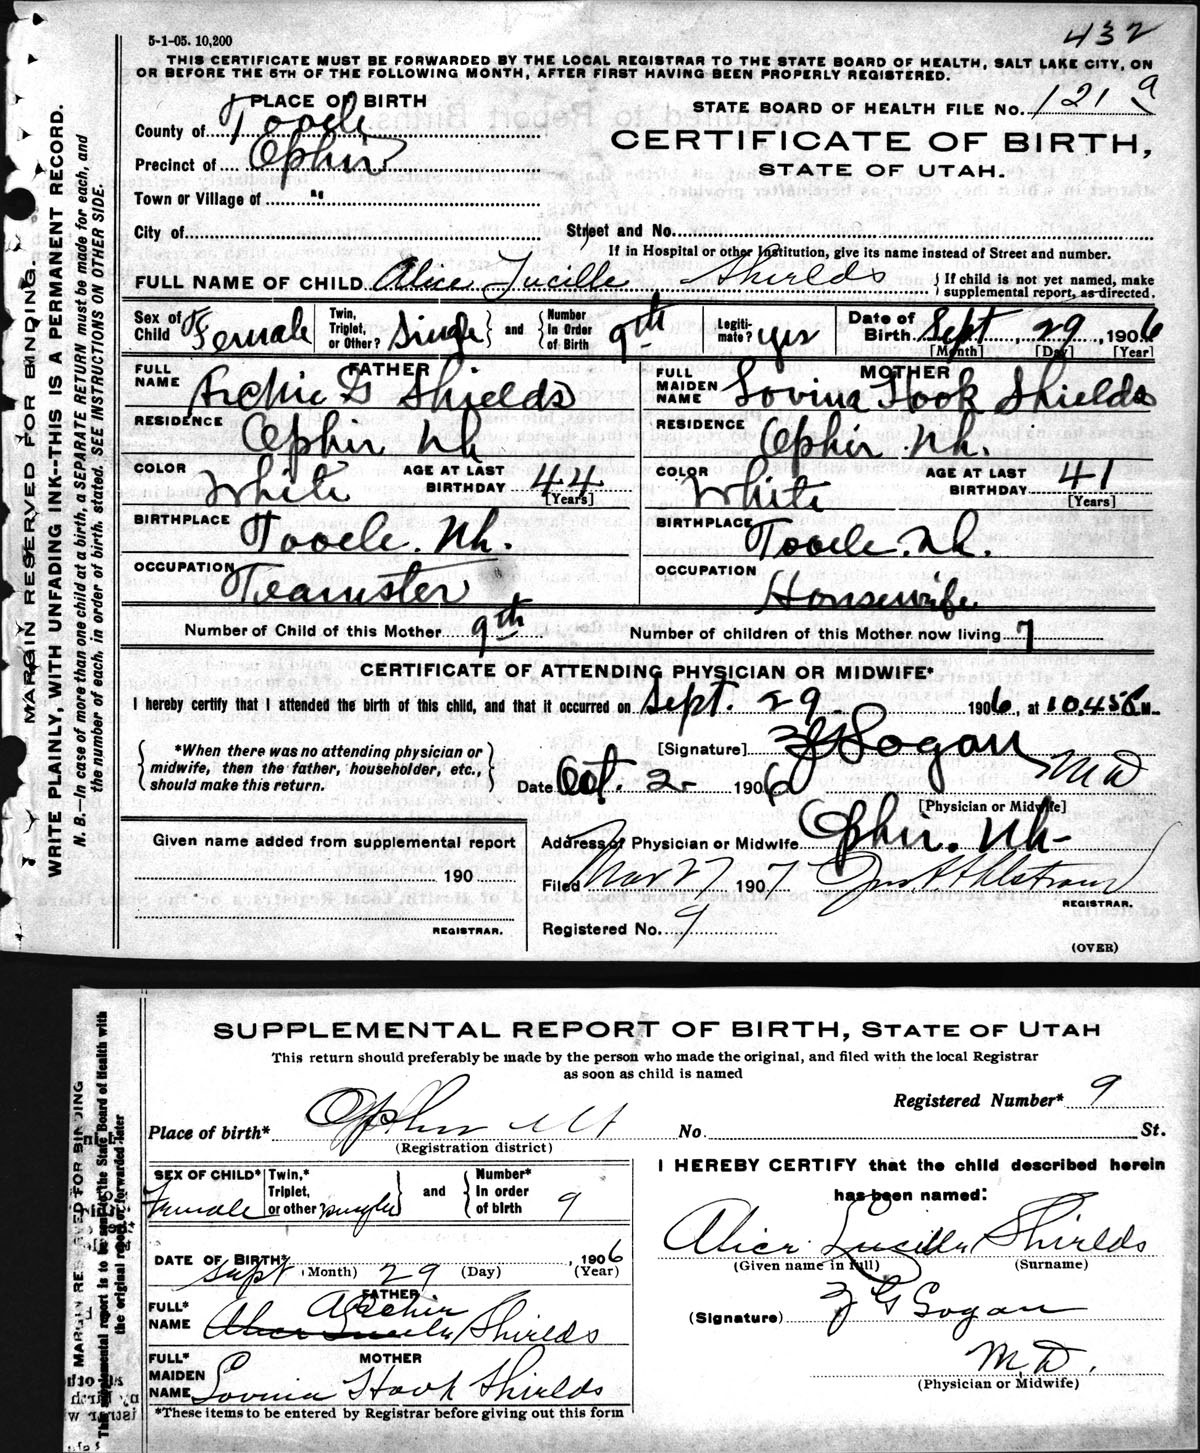 5-1-05. 10,200
432
THIS CERTIFICATE MUST BE FORWARDED BY THE LOCAL REGISTRAR TO THE STATE BOARD OF HEALTH, SALT LAKE CITY, ON
OR BEFORE THE 5TH OF THE FOLLOWING MONTH, AFTER FIRST HAVING BEEN PROPERLY REGISTERED.
PLACE OF BIRTH
STATE BOARD OF HEALTH FILE No. 121 9
County of Tooele
CERTIFICATE OF BIRTH,
Precinct of Ophir
STATE OF UTAH.
Town or Village of "
City of Street and No.
If in Hospital or other Institution, give its name instead of Street and number.
FULL NAME OF CHILD Alice Lucille Shields { If child is not yet named, make
supplemental report, as directed.
Sex of Child Female Twin, Triplet, or Other? Single } and { Number In Order of Birth 9th Legiti-mate? yes Date of Birth Sept 29, 1906
[Month] [Day] [Year]
FATHER
FULL NAME Archie G Shields
RESIDENCE Ophir Uh
COLOR White AGE AT LAST BIRTHDAY 44 [Years]
BIRTHPLACE Tooele. Uh.
OCCUPATION Teamster
MOTHER
FULL MAIDEN NAME Lovina Hook Shields
RESIDENCE Ophir. Uh.
COLOR White AGE AT LAST BIRTHDAY 41 [Years]
BIRTHPLACE Tooele. Uh.
OCCUPATION Housewife
Number of Child of this Mother 9th Number of children of this Mother now living 7
CERTIFICATE OF ATTENDING PHYSICIAN OR MIDWIFE*
I hereby certify that I attended the birth of this child, and that it occurred on Sept. 29 1906, at 10.45 M.
{ *When there was no attending physician or
midwife, then the father, householder, etc.,
should make this return. }
[Signature] MD
Date Oct. 2 1906
[Physician or Midwife]
Address of Physician or Midwife Ophir. Uh-
Filed Mar 27 1907 Jno A Ahlstrom
REGISTRAR.
Registered No. 9
Given name added from supplemental report
190
REGISTRAR.
(OVER)
MARGIN RESERVED FOR BINDING.
WRITE PLAINLY, WITH UNFADING INK--THIS IS A PERMANENT RECORD.
N. B.—In case of more than one child at a birth, a SEPARATE RETURN must be made for each, and
the number of each, in order of birth, stated. SEE INSTRUCTIONS ON OTHER SIDE.
SUPPLEMENTAL REPORT OF BIRTH, STATE OF UTAH
This return should preferably be made by the person who made the original, and filed with the local Registrar
as soon as child is named
Registered Number* 9
Place of birth* Ophir Ut No. St.
(Registration district)
SEX OF CHILD* Female Twin,* Triplet, or other single } and { Number* In order of birth 9
DATE OF BIRTH* Sept (Month) 29 (Day), 1906 (Year)
FATHER
FULL* NAME Alice Lucille Archie Shields
MOTHER
FULL* MAIDEN NAME Lovina Hook Shields
*These items to be entered by Registrar before giving out this form
I HEREBY CERTIFY that the child described herein
has been named:
Alice Lucille Shields
(Given name in full) (Surname)
(Signature)
M.D.
(Physician or Midwife)
MARGIN RESERVED FOR BINDING
This supplemental report is to be sent to the State Board of Health with
the original report or forwarded later